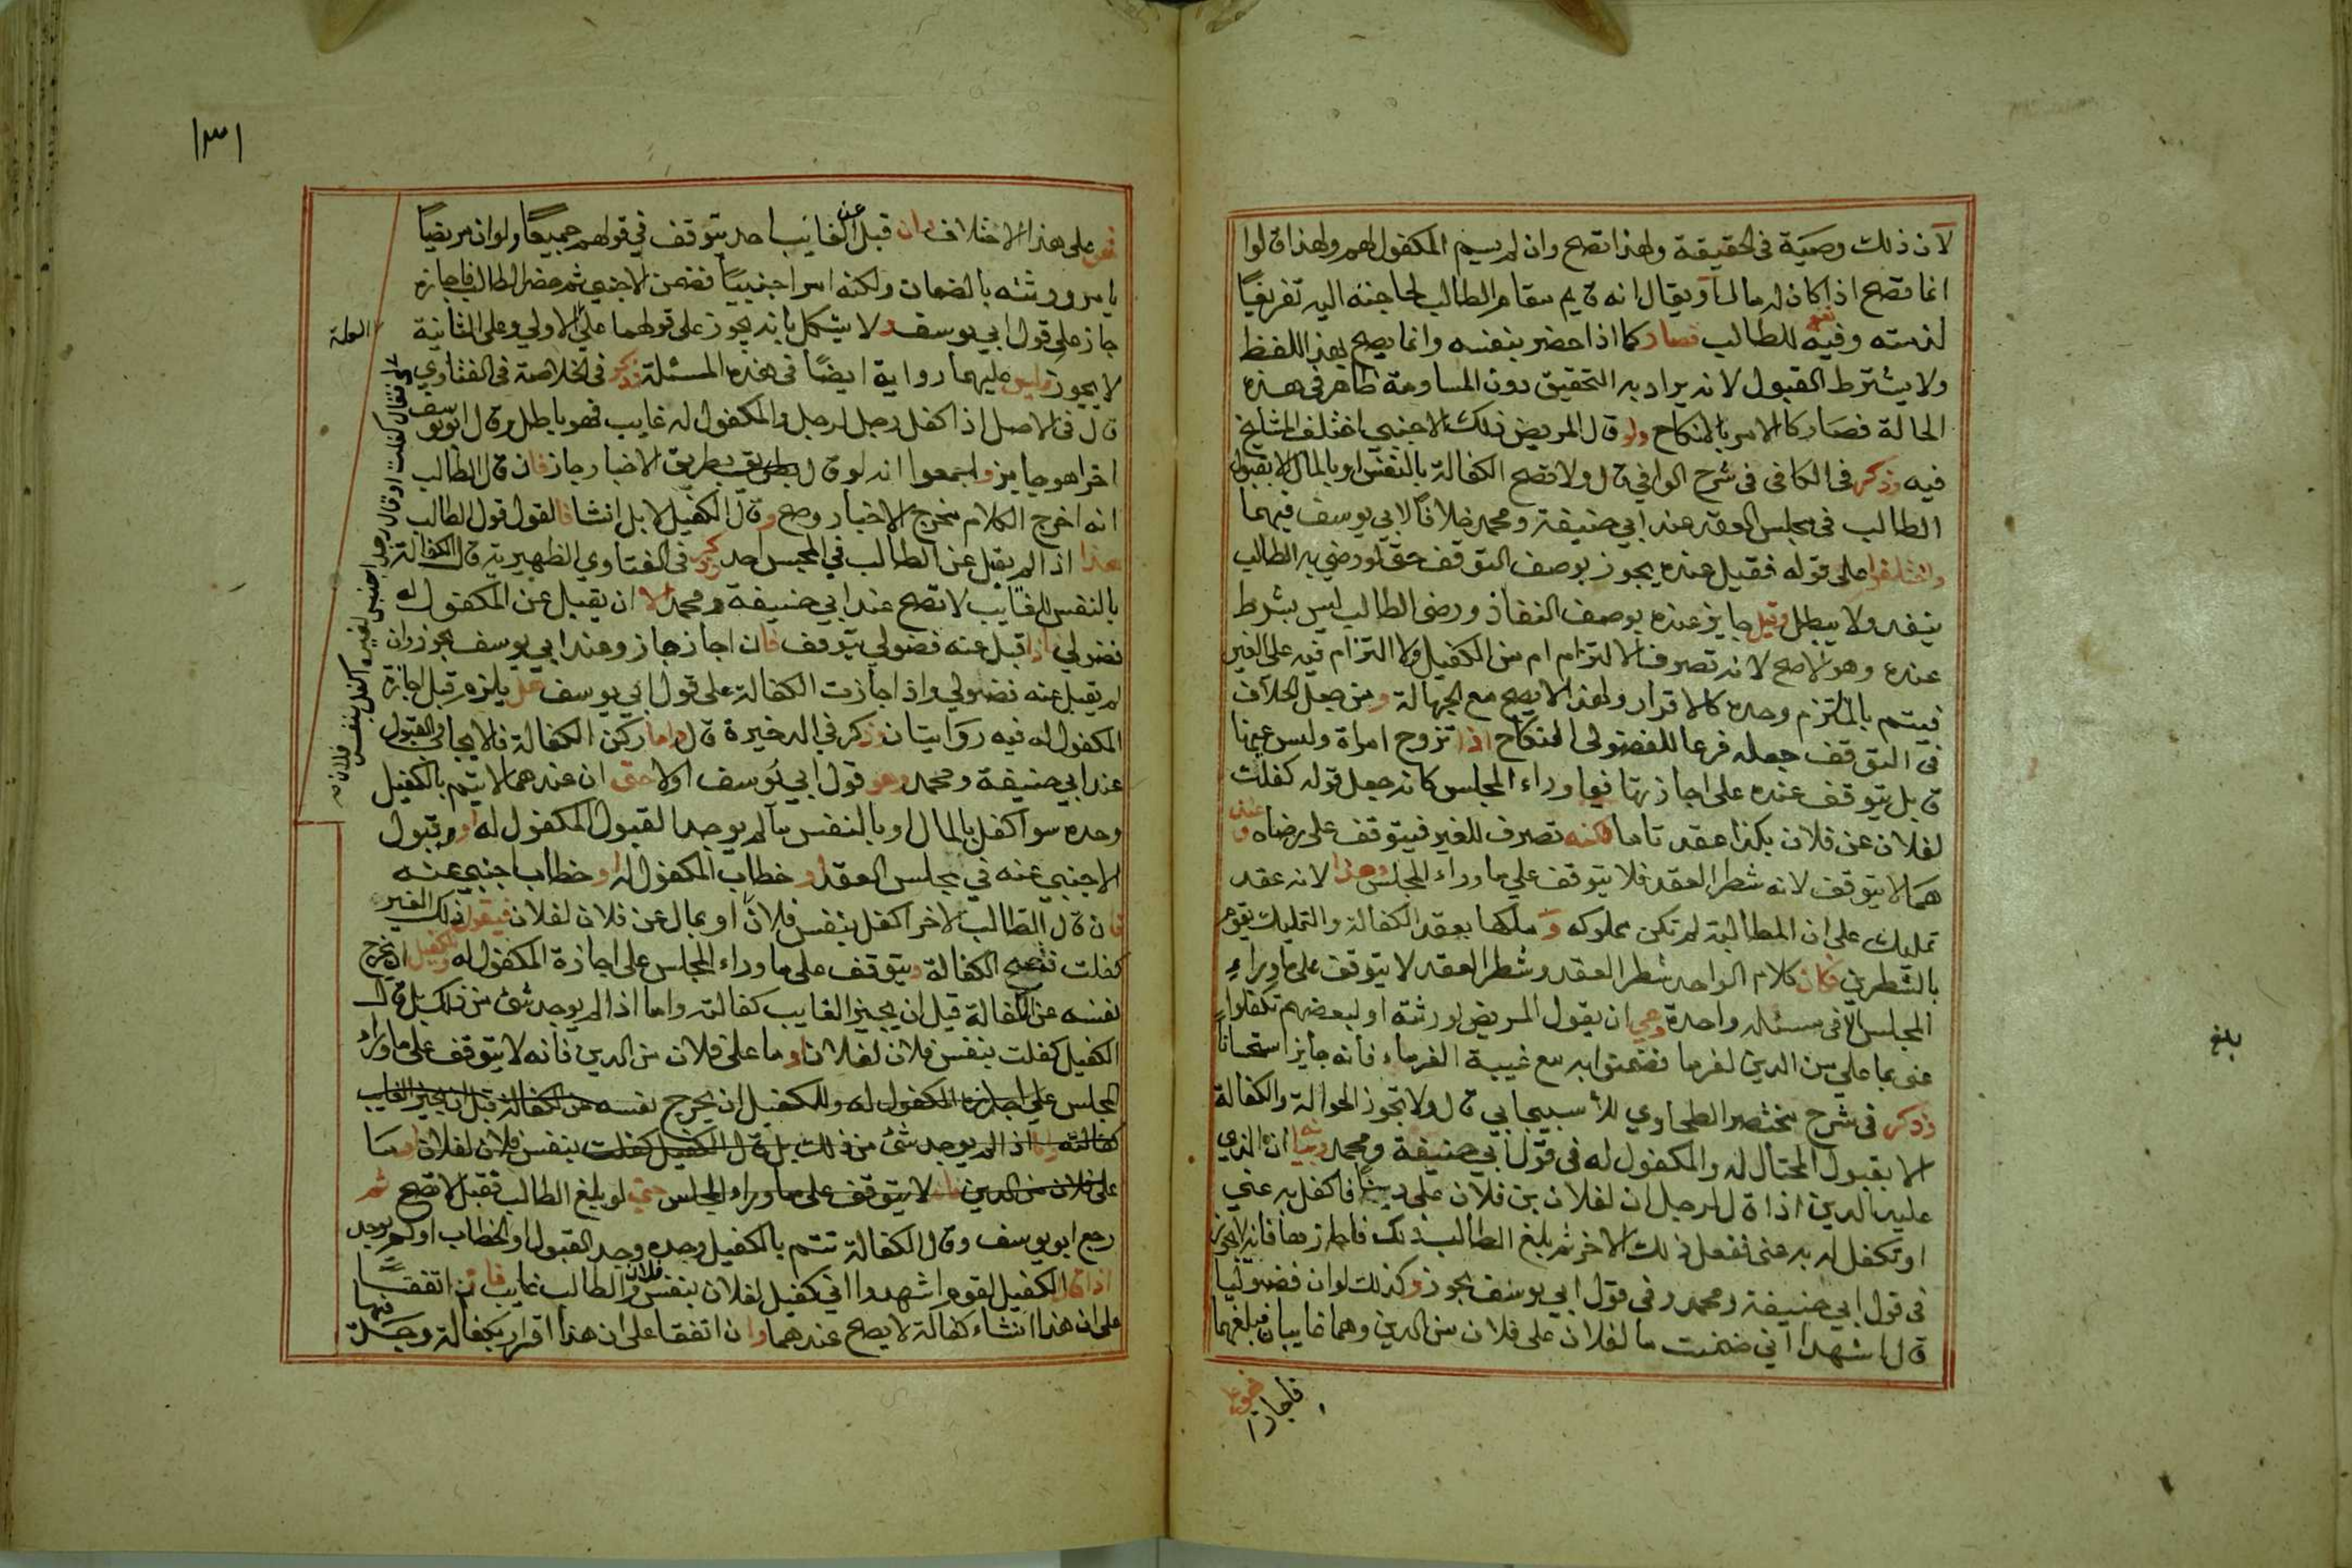 لان ذلك وصية في الحقيقة ولهذا تصح وان لم يسم المكفول لهم ولهذا قالوا
انما تصح اذا كان له مال او يقال انه قايم مقام الطالب لحاجته اليه تفريغا
لذمته وفيه نفع للطالب فصار كما اذا حضر بنفسه وانما يصح بهذا اللفظ
ولا يشترط القبول لانه يراد به التحقيق دون المساومة ظاهر في هذه
الحالة فصار كالامر بالنكاح ولو قال المريض ذلك لاجنبي اختلف المشايخ
فيه وذكر في الكافي في شرح الوافي قال ولا تصح الكفالة بالنفس او بالمال الا بقبول
الطالب في مجلس العقد عند ابي حنيفة ومحمد خلافا لابي يوسف فيهما
واختلفوا على قوله فقيل عنده يجوز بوصف التوقف حتى لو رضي به الطالب
ينفد ولا يبطل وقيل جايز عنده بوصف النفاذ ورضى الطالب ليس بشرط
عنده وهو الاصح لانه تصرف الالتزام من الكفيل ولا التزام فيه على الغير
فيتم بالملتزم وحده كالاقرار ولهذا لا يصح مع الجهالة ومن جعل الخلاف
في التوقف جعله فرعا للفضولي النكاح اذا تزوج امراة وليس عنها
قابل يتوقف عنده على اجازتها فيما وراء المجلس كانه جعل قوله كفلت
لفلان عن فلان بكذا عقد تاما لكنه تصرف للغير فيتوقف على رضاه وعند
هما لا يتوقف لانه شطر العقد فلا يتوقف علي ما وراء المجلس وهذا لانه عقد
تمليك على ان المطالبة لم تكن مملوكه وملكها بعقد الكفالة والتمليك يقوم
بالشطرين فكان كلام الواحد شطر العقد وشطر العقد لا يتوقف على ما وراء
المجلس الا في مسئلة واحدة وهي ان يقول المريض لورثته او لبعضهم تكفلوا
عني بما علي من الدين لغرما فضمنوا به مع غيبة الغرماء فانه جايز استحسانا
وذكر في شرح مختصر الطحاوي للاسبيجابي قال ولا تجوز الحوالة والكفالة
الا بقبول المحتال له والمكفول له في قول ابي حنيفة ومحمد وبيانه ان الذي
عليه الدين اذا قال لرجل ان لفلان بن فلان علي دينا فاكفل به عني
او تكفل له به عني ففعل ذلك الاخر ثم بلغ الطالب ذلك فاجازها فانه لا يجوز
في قول ابي حنيفة ومحمد وفي قول ابي يوسف يجوز وكذلك لو ان فضوليا
قال اشهدا اني ضمنت ما لفلان على فلان من الدين وهما غايبان فبلغهما
فاجازا
بلغ
١٣١
فهو على هذا الاختلاف وان قبل عن الغايب احد يتوقف في قولهم جميعا ولو ان مريضا
يامر وورثته بالضمان ولكنه امر اجنبيا فضمن الاجنبي ثم حضر الطالب فاجازه
جاز على قول ابي يوسف ولا يشكل بانه يجوز على قولهما على الاولي وعلى الثانية
لا يجوز وليس عليهما رواية ايضا في هذه المسئلة وذكر في الخلاصة في الفتاوي
قال في الاصل اذا كفل رجل لرجل والمكفول له غايب فهو باطل وقال ابو يوسف
اخرا هو جايز واجمعوا انه لو قال بطريق بطريق الاخبار جاز فان قال الطالب
انه اخرج الكلام مخرج الاخبار وصح وقال الكفيل لا بل انشا فالقول قول الطالب
هذا اذا لم يقبل عن الطالب في المجلس احد وذكر في الفتاوي الظهيرية قال الكفالة
بالنفس للغايب لا تصح عند ابي حنيفة ومحمد الا ان يقبل عن المكفول له
فضولي اذا قبل عنه فضولي يتوقف فان اجاز جاز وعند ابي يوسف يجوز وان
لم يقبل عنه فضولي واذا اجازت الكفالة على قول ابي يوسف هل يلزم قبل اجازة
المكفول له فيه روايتان وذكر في الدخيرة قال واما ركن الكفالة فالايجاب والقبول
عند ابي حنيفة ومحمد وهو قول ابي يوسف اولا حتى ان عندهما لا يتم بالكفيل
وحده سوا كفل بالمال او بالنفس ما لم يوجد القبول المكفول له او قبول
الاجنبي عنه في مجلس العقد او خطاب المكفول له او خطاب اجنبي عنه
فان قال الطالب لاخر اكفل بنفس فلان او بمال عن فلان لفلان فيقول ذلك الغير
كفلت تصح الكفالة ويتوقف على ما وراء المجلس على اجازة المكفول له وللكفيل ان يخرج
نفسه عن الكفالة قبل ان يجيز الغايب كفالته واما اذا لم يوجد شئ من ذلك بل قال
الكفيل كفلت بنفس فلان لفلان او ما على فلان من الدين فانه لا يتوقف على ما وراء
المجلس علي اجازة المكفول له وللكفيل ان يخرج نفسه عن الكفالة قبل ان يجيز الغايب
كفالته واما اذا لم يوجد شئ من ذلك بل قال الكفيل كفلت بنفس فلان لفلان او ما
على فلان من الدين فانه لا يتوقف على ما وراء المجلس حتى لو بلغ الطالب فقبل لا تصح ثم
رجع ابو يوسف وقال الكفالة تتم بالكفيل وحده وجد القبول او الخطاب او لم يوجد
اذا قال الكفيل لقوم اشهدوا اني كفيل لفلان بنفس فلان والطالب غايب فان اتفقا
على ان هذا انشاء كفالة لا يصح عندهما وان اتفقا على ان هذا اقرار بكفالة وجدت قبلها